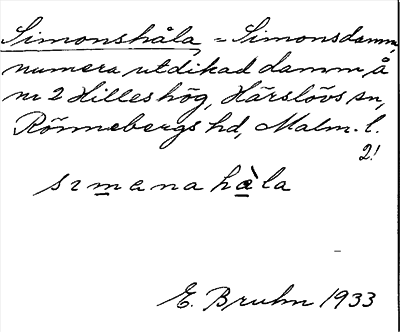 Simonshåla, = Simonsdamm,
numera utdikad damm, å
nr 2 Hilleshög, Härslövs sn,
Rönnebergs hd, Malm. l.
2!
sımena hàla
E. Bruhn 1933